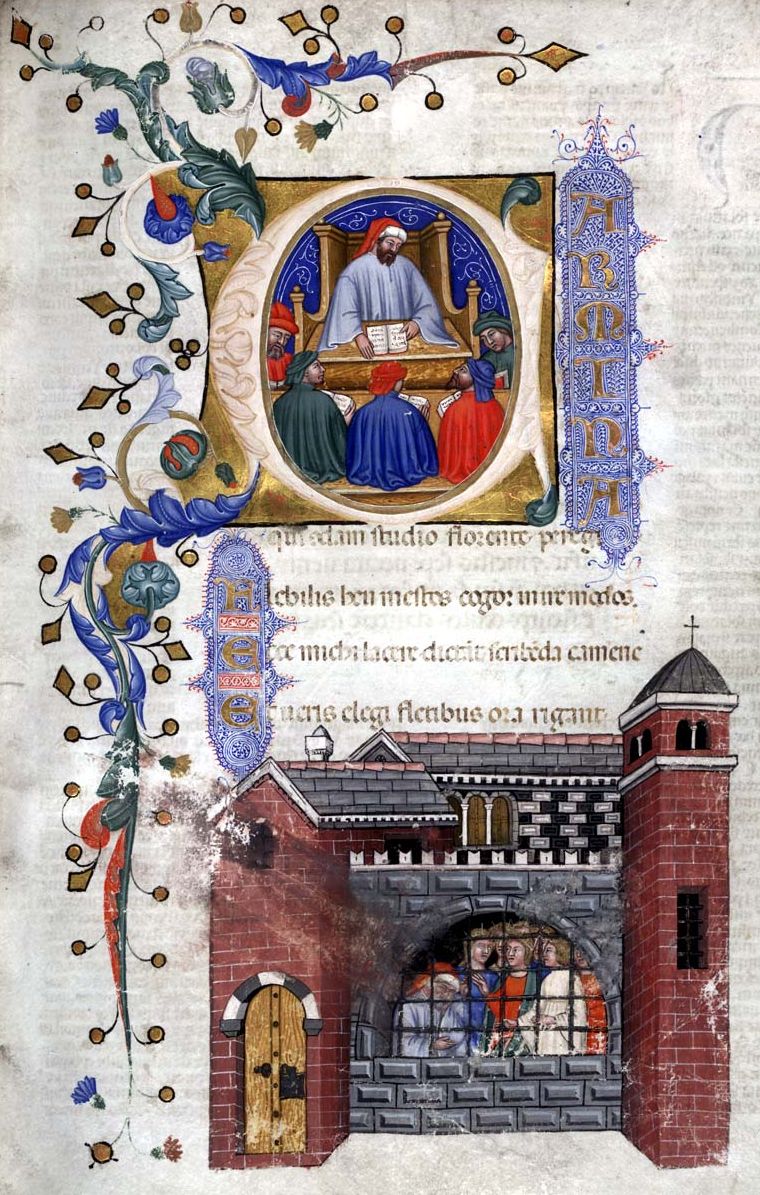 CARMINA
qui studio florente peregi
Flebilis heu mestos cogor inire modos.
Ecce michi lacere dictāt scribēda camene
Et ueris elegi fletibus ora rigant